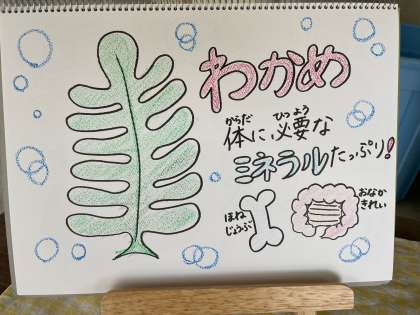 わかめ
からだ ひつよう
体に必要な
ミネラルたっぷり!
ほね
じょうぶ
おなか
きれい